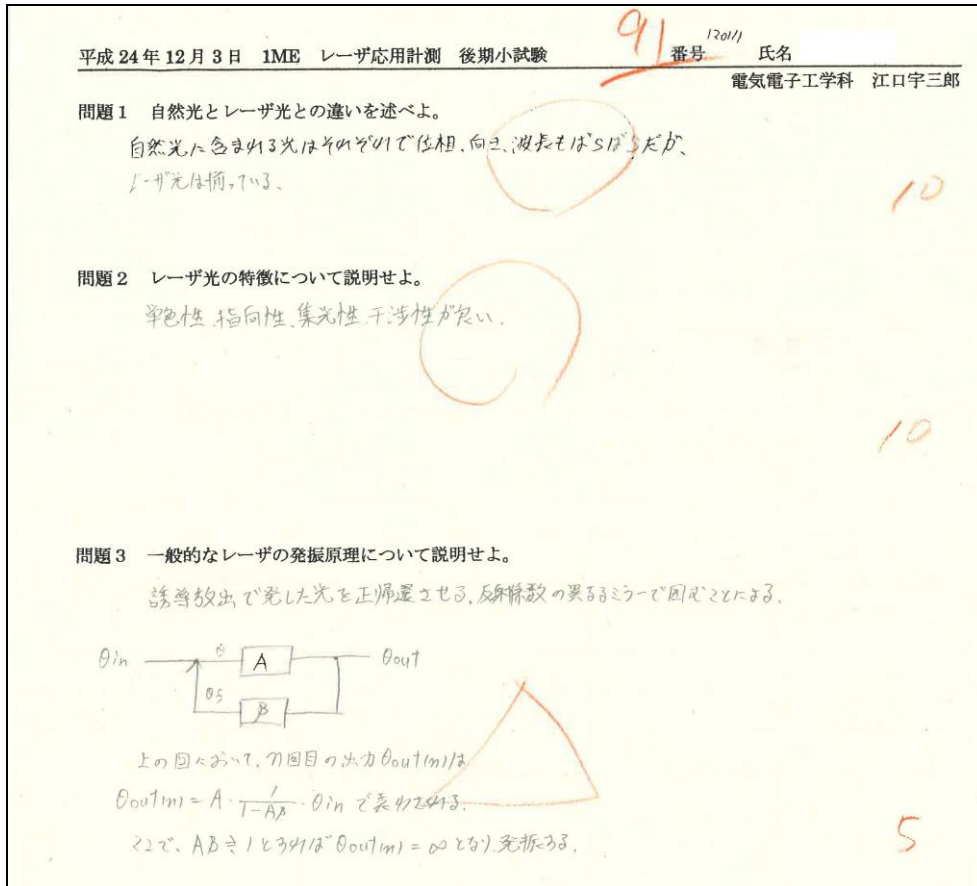 平成24年12月3日 1ME レーザ応用計測 後期小試験 91 番号 12011 氏名
電気電子工学科 江口宇三郎
問題1 自然光とレーザ光との違いを述べよ。
自然光に含まれる光はそれぞれで位相、向き、波長もばらばらだが、
レーザ光は揃っている。
10
問題2 レーザ光の特徴について説明せよ。
単色性、指向性、集光性、干渉性が良い。
10
問題3 一般的なレーザの発振原理について説明せよ。
誘導放出で発した光を正帰還させる。反射係数の異るミラーで囲むことによる。
θin θ A θout
θf β
上の図において、n回目の出力θout(n)は
θout(n) = A・1/(1-Aβ)・θin で表わされる。
ここで、Aβ≒1とすればθout(n) = ∞となり、発振する。
5